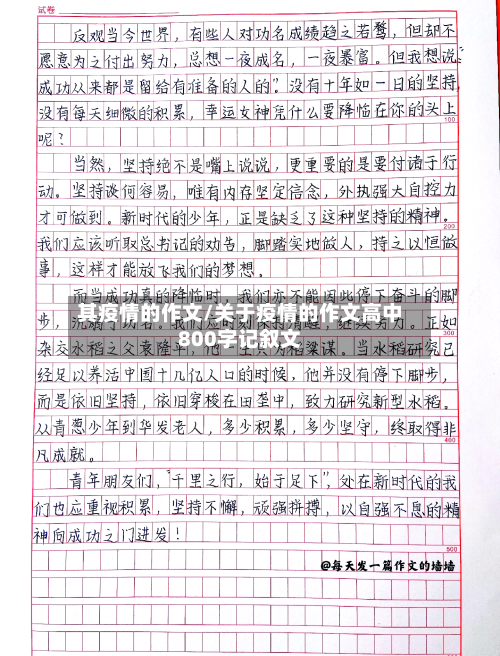 试卷
反观当今世界，有些人对功名成绩趋之若鹜，但却不
愿意为之付出努力，总想一夜成名，一夜暴富。但我想说：“
成功从来都是留给有准备的人的”。没有十年如一日的坚持，
没有每天细微的积累，幸运女神凭什么要降临在你的头上
100
呢？
当然，坚持绝不是嘴上说说，更重要的是要付诸于行
动。坚持谈何容易，唯有内存坚定信念，外执强大自控力
才可做到。新时代的少年，正是缺乏了这种坚持的精神。
200
我们应该听取总书记的劝告，脚踏实地做人，持之以恒做
事，这样才能放飞我们的梦想。
而当成功真的降临时，我们亦不能因此停下奋斗的脚
其疫情的作文/关于疫情的作文高中
800字记叙文
步，
正如
杂交水稻之父袁隆平，他一生只为稻粱谋。当水稻研究已
经足以养活中国十几亿人口的时候，他并没有停下脚步，
而是依旧坚持，依旧穿梭在田垄中，致力研究新型水稻。
从青葱少年到华发老人，多少积累，多少坚守，终取得非
400
凡成就。
青年朋友们，“千里之行，始于足下”，处在新时代的我
们也应重视积累，坚持不懈，顽强拼搏，以自强不息的精
神向成功之门进发！
500
@每天发一篇作文的墙墙